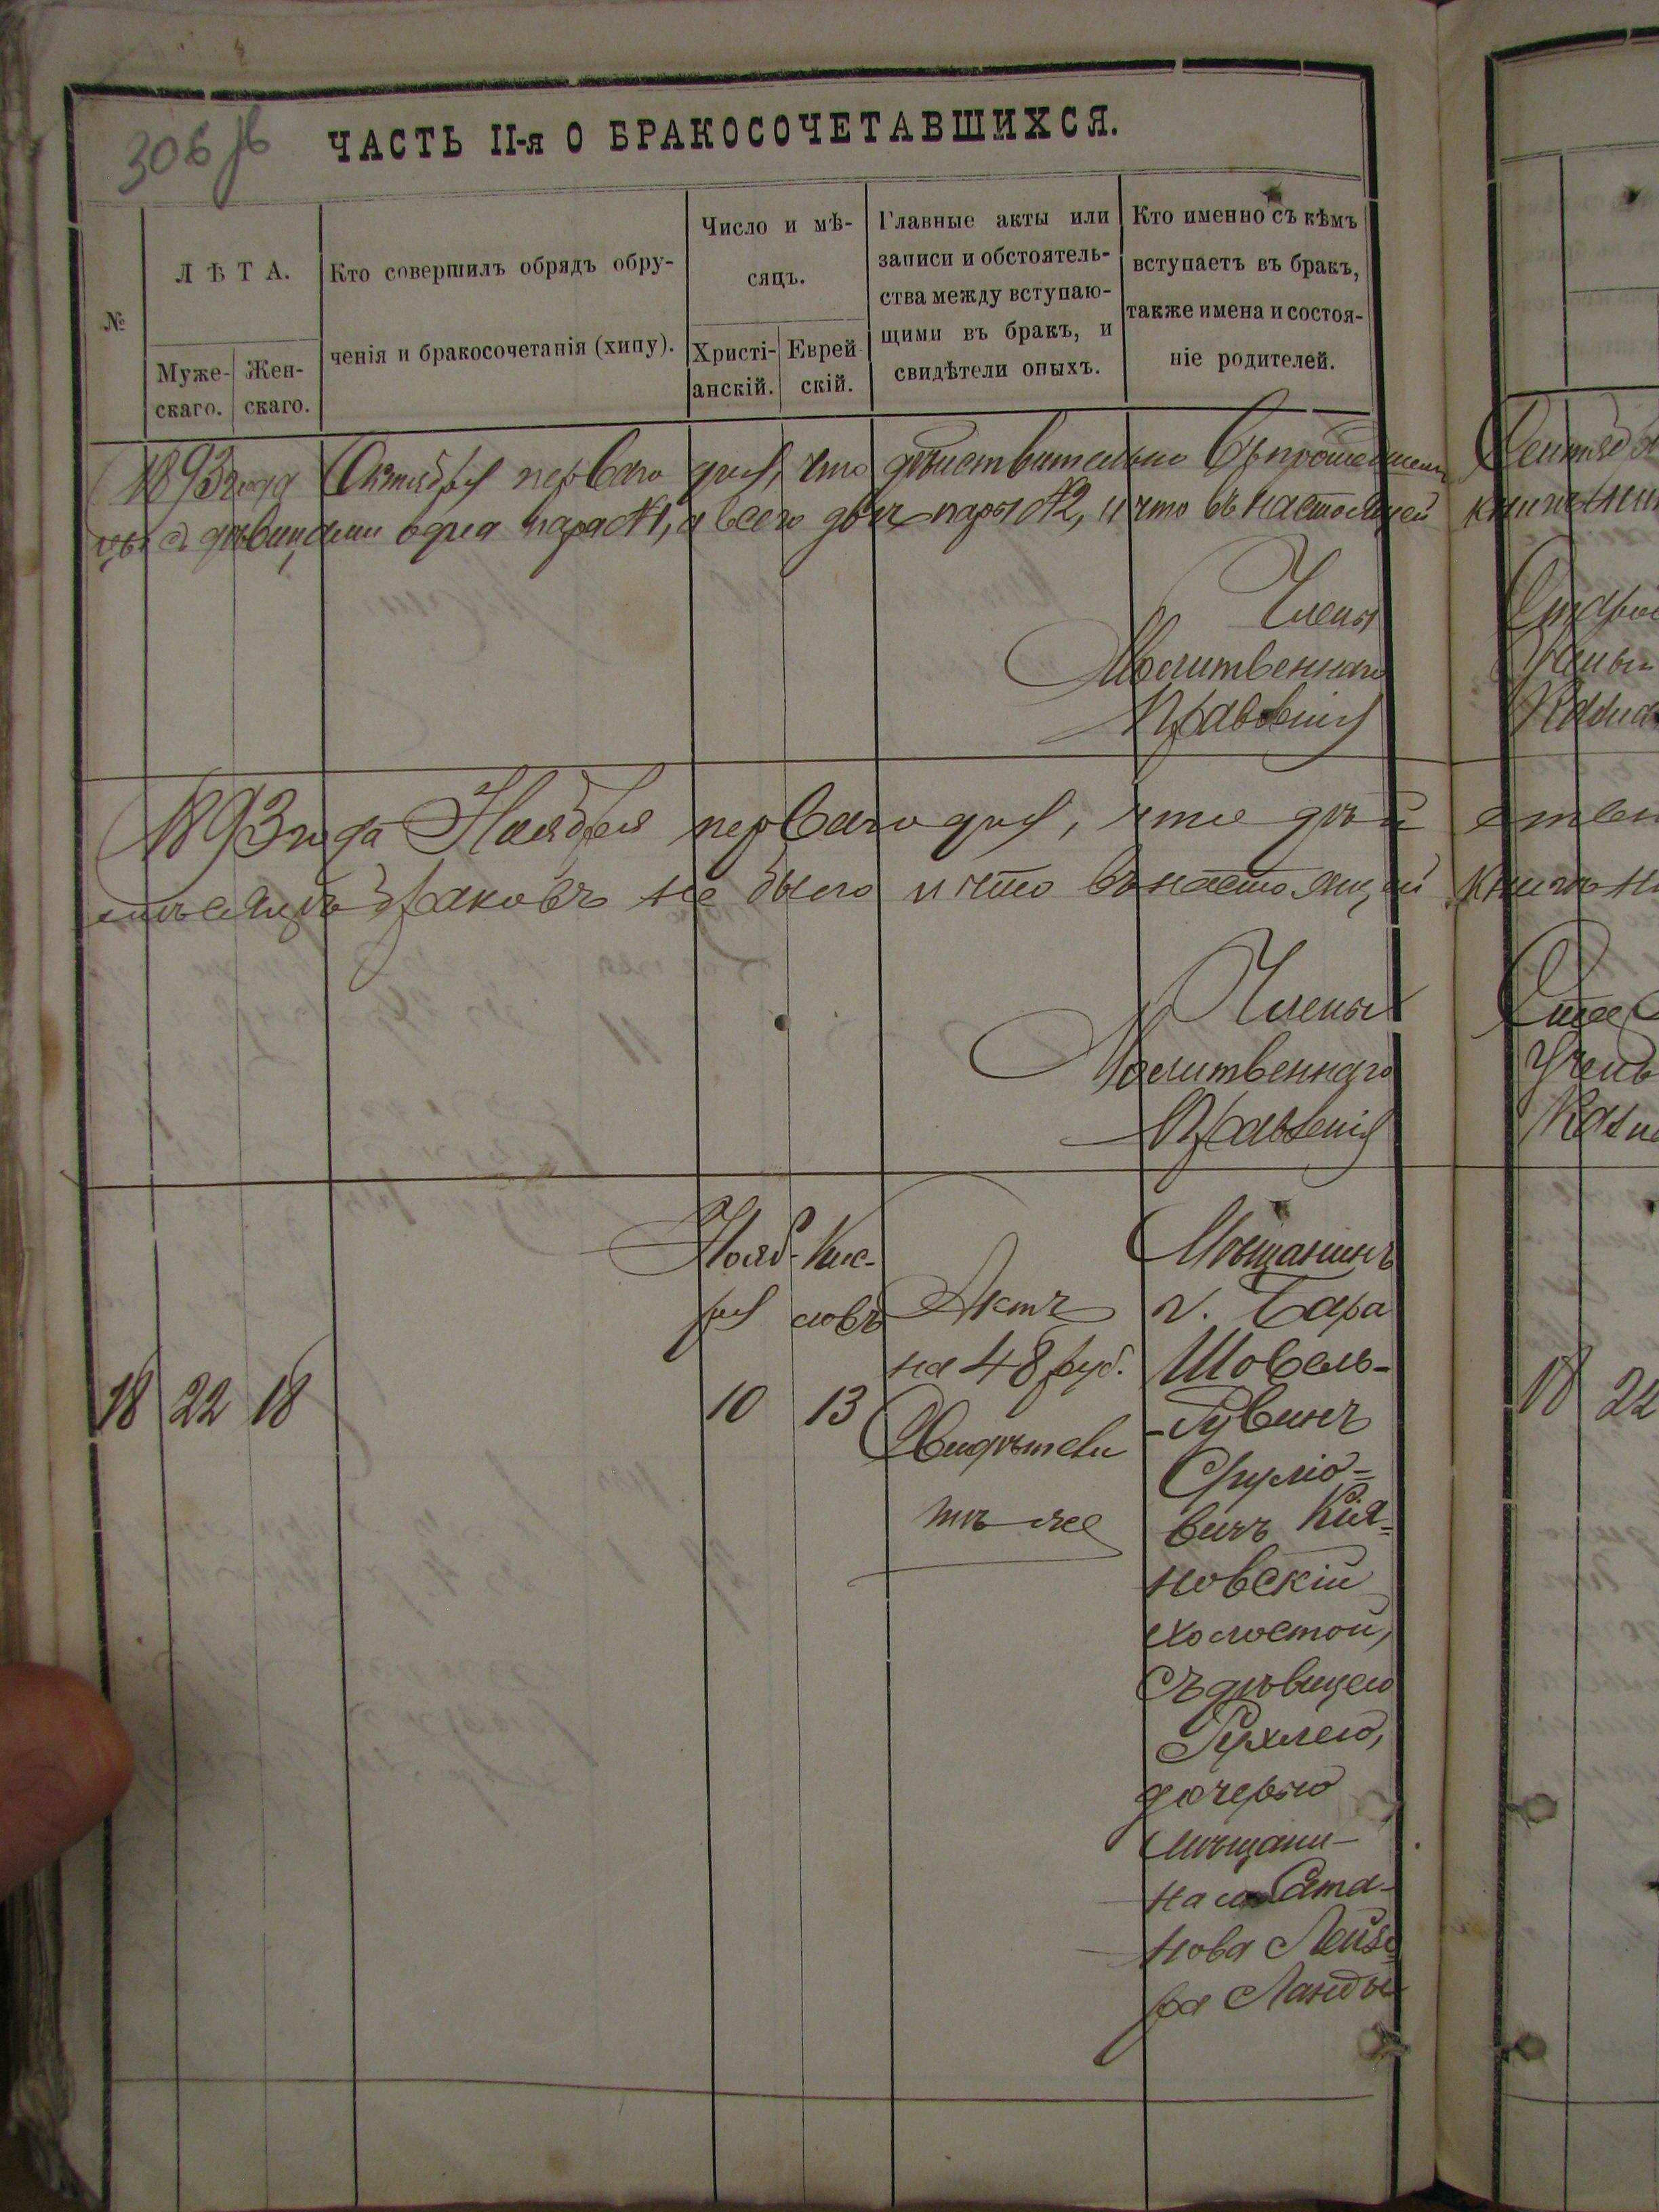 306
ЧАСТЬ II-я О БРАКОСОЧЕТАВШИХСЯ.
№
ЛѢТА.
Муже-
скаго.
Жен-
скаго.
Кто совершилъ обрядъ обру-
ченія и бракосочетанія (хипу).
Число и мѣ-
сяцъ.
Христі-
анскій.
Еврей
скій.
Главные акты или
записи и обстоятель-
ства между вступаю-
щими въ бракъ, и
свидѣтели оныхъ.
Кто именно съ кѣмъ
вступаетъ въ бракъ,
также имена и состоя-
ніе родителей.
1893 года Октября перваго дня, что дѣйствительно въ прошедшемъ
цы съ дѣвицами одна пара №1, а всего двѣ пары №2, и что въ настоящей
Члены
Молитвеннаго
Правленія
1893 года Ноября перваго дня, что дѣй
мѣсяцѣ браковъ не было и что въ настоящей
Члены
Молитвеннаго
Правленія
18
22
18
Нояб-
ря
10
Кис-
ловъ
13
Актъ
на 48 руб.
Свидѣтели
тѣ же
Мѣщанинъ
г. Бара
Шовель-
-Рувинъ
Срулio-
вичъ Кія-
новскій
холостой,
съ дѣвицею
Рухлею,
дочерью
мѣщани-
на Ста-
нова Лейзе
ра Ланды
Сентября
книгѣ
Казна
ствен
книгѣ
Учены
Казн
18
22